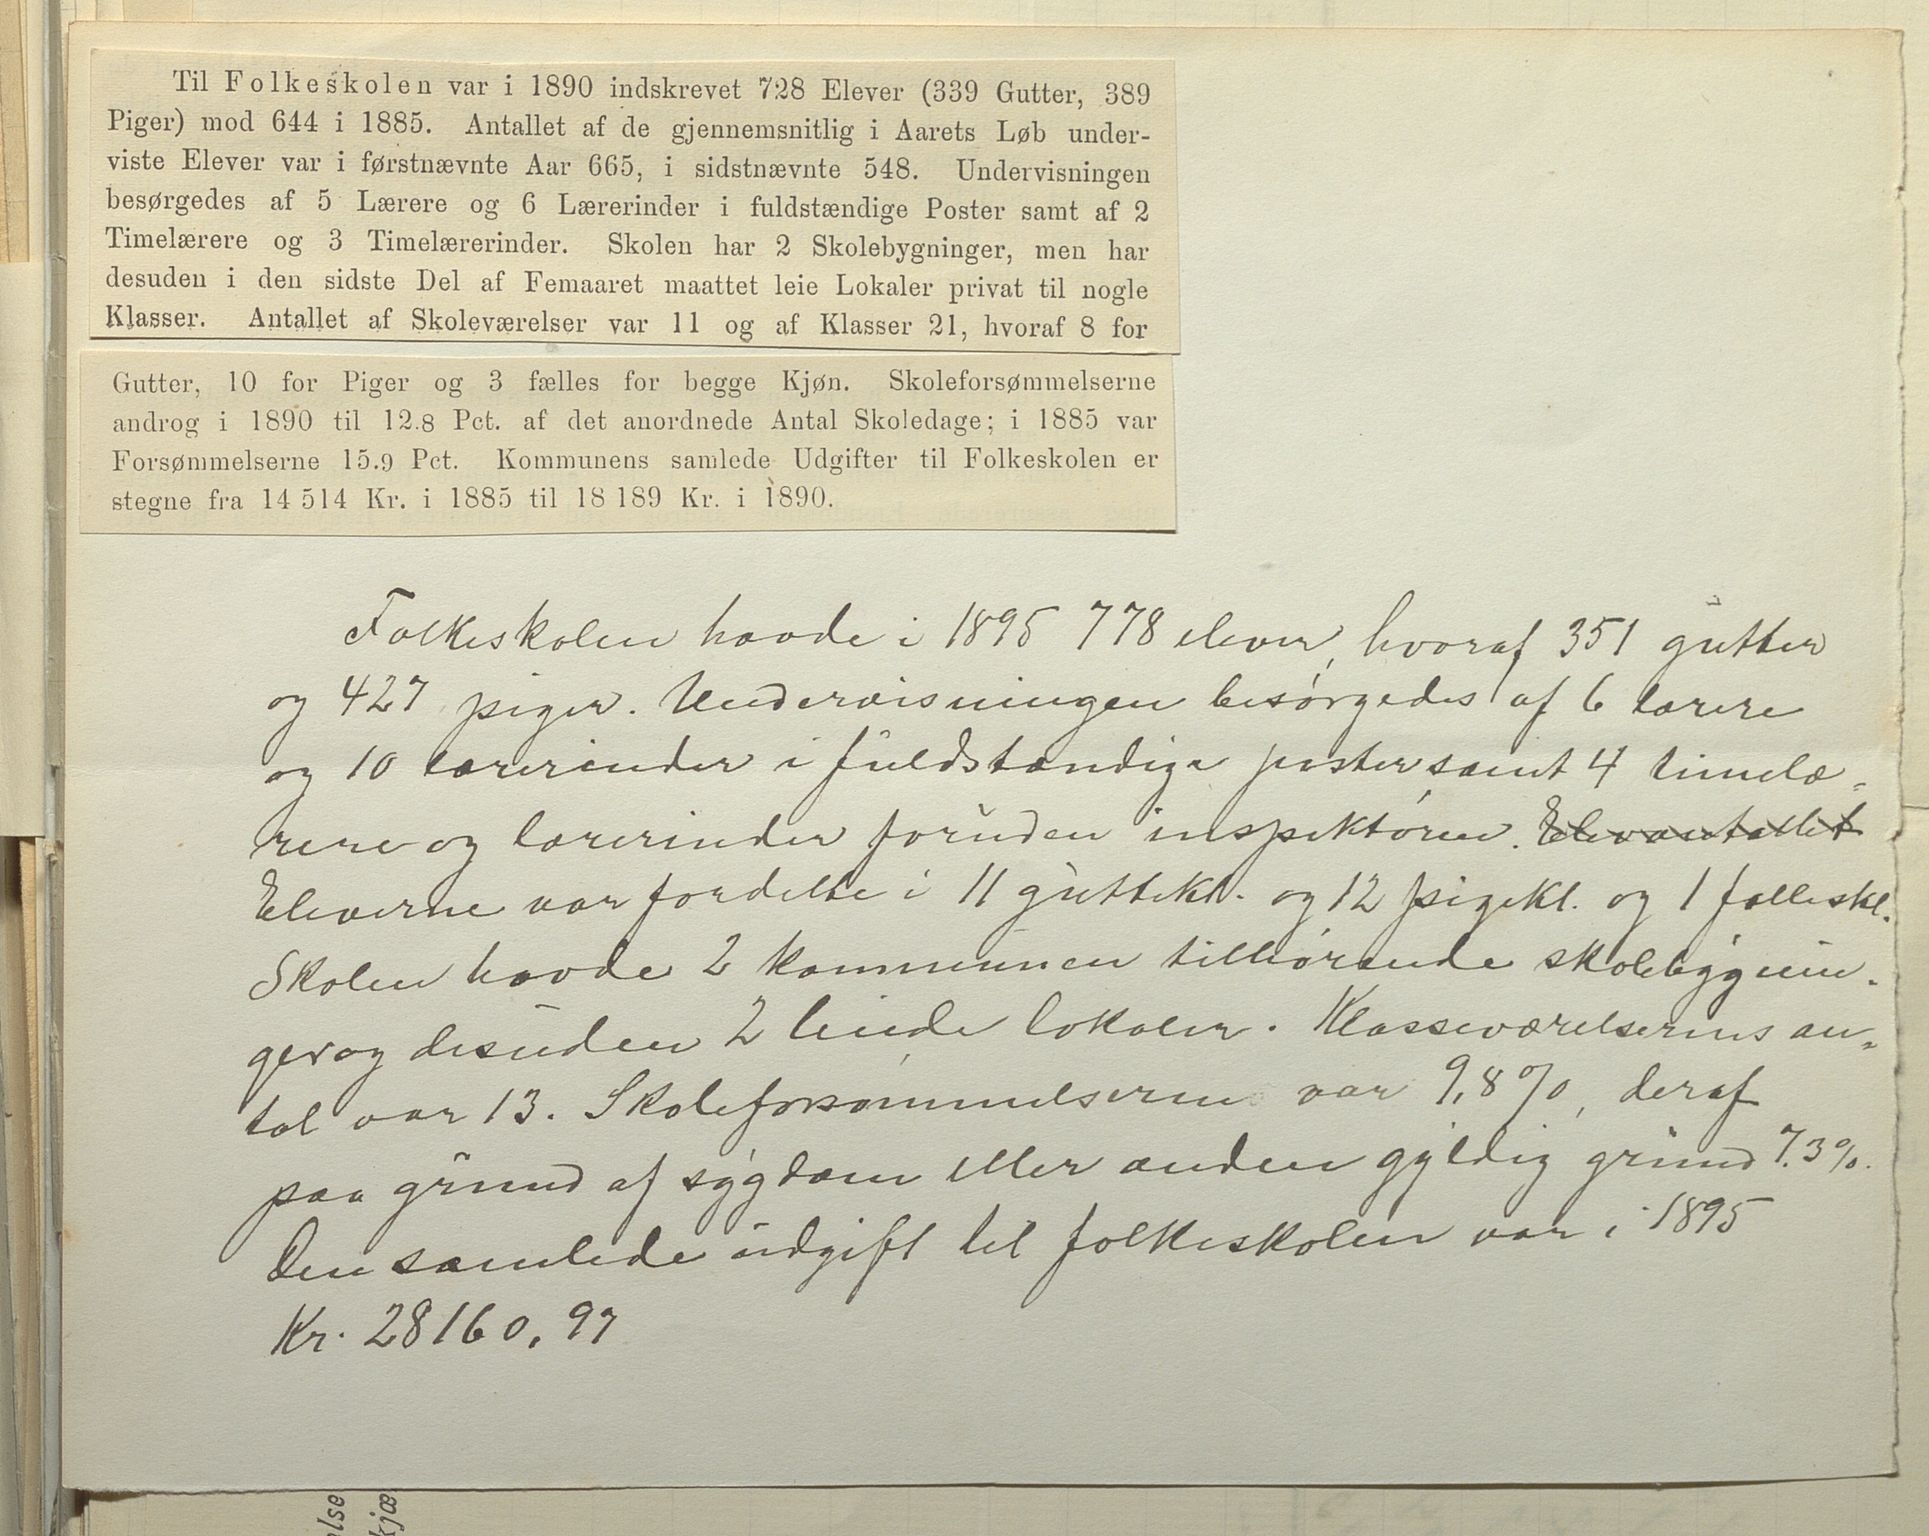 Til Folkeskolen var i 1890 indskrevet 728 Elever (339 Gutter, 389
Piger) mod 644 i 1885. Antallet af de gjennemsnitlig i Aarets Løb under-
viste Elever var i førstnævnte Aar 665, i sidstnævnte 548. Undervisningen
besørgedes af 5 Lærere og 6 Lærerinder i fuldstændige Poster samt af 2
Timelærere og 3 Timelærerinder. Skolen har 2 Skolebygninger, men har
desuden i den sidste Del af Femaaret maattet leie Lokaler privat til nogle
Klasser. Antallet af Skoleværelser var 11 og af Klasser 21, hvoraf 8 for
Gutter, 10 for Piger og 3 fælles for begge Kjøn. Skoleforsømmelserne
androg i 1890 til 12.8 Pct. af det anordnede Antal Skoledage; i 1885 var
Forsømmelserne 15.9 Pct. Kommunens samlede Udgifter til Folkeskolen er
stegne fra 14 514 Kr. i 1885 til 18 189 Kr. i 1890.
Folkeskolen havde i 1895 778 elever, hvoraf 351 gutter
og 427 piger. Undervisningen besørgedes af 6 lærere
og 10 lærerinder i fuldstændige poster samt 4 timelæ-
rere og lærerinder foruden inspektøren. Elevantallet
Eleverne var fordelte i 11 guttekl. og 12 pigekl. og 1 fælleskl.
Skolen havde 2 kommunen tilhørende skolebygnin-
ger og desuden 2 leiede lokaler. Klasseværelsernes an-
tal var 13. Skoleforsømmelserne var 9,8 %, deraf
paa grund af sygdom eller anden gyldig grund 7.3 %.
Den samlede udgift til folkeskolen var i 1895
Kr. 28160,97
else
kjæ